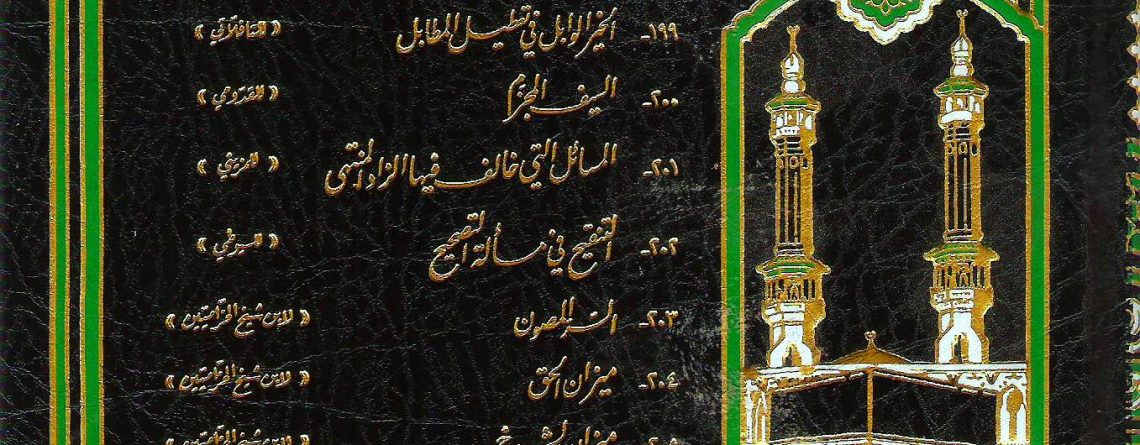 ١٩٩- الخير الوابل في تعطيل المطابل «للتافلاتي»
٢٠٠- السيف المجزم «للقدومي»
٢٠١- المسائل التي خالف فيها الزاد المنتهى «للمزيني»
٢٠٢- التنقيح في مسألة التصحيح «للسيوطي»
٢٠٣- السر المصون «لابن شيخ الحزاميين»
٢٠٤- ميزان الحق «لابن شيخ الحزاميين»
«لابن شيخ الحزاميين»